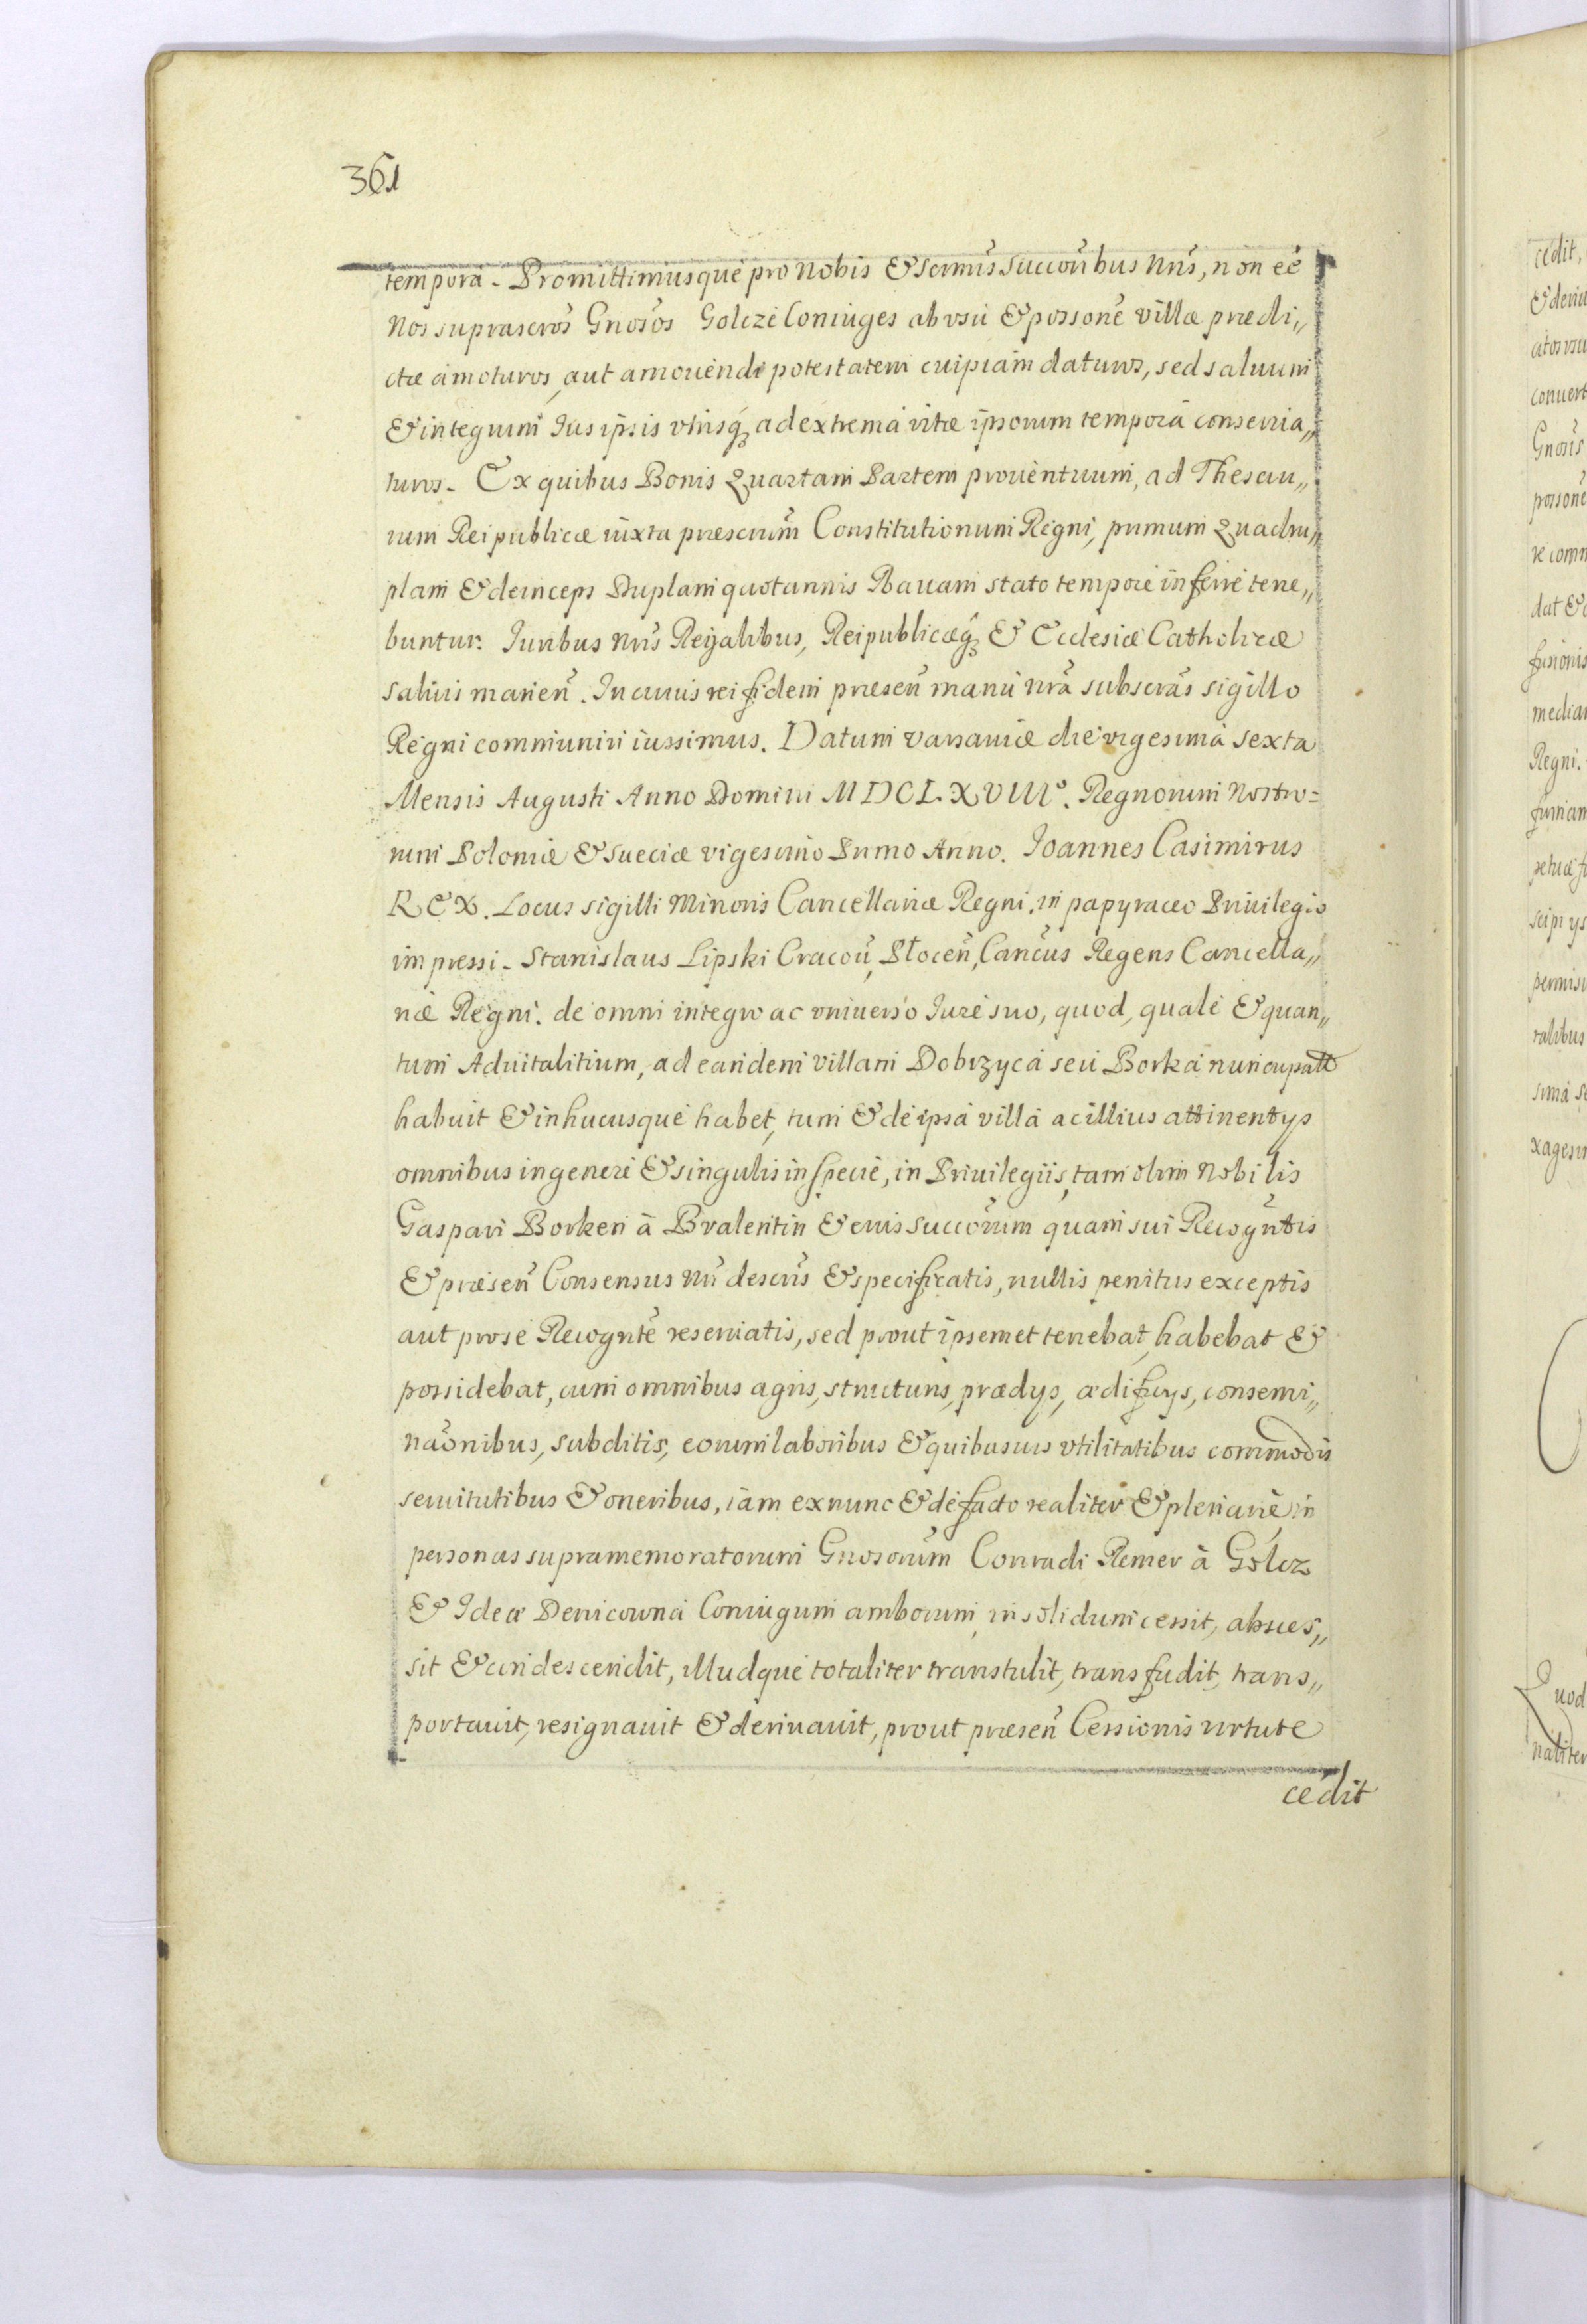 361
tempora. Promittimusque pro Nobis & sermis succoribus nris, non eē
Nos suprascros Gnosos Golcze Coniuges ab vsu & possone villæ prædi„
ctæ amoturos, aut amouendi potestatem cuipiam daturos, sed saluum
& integrum Jus ipsis vtrisq; ad extrema vitæ ipsorum tempora conserua„
turos. Ex quibus Bonis Quartam Partem prouentuum, ad Thesau„
rum Reipublicæ iuxta præscrum Constitutionum Regni, primum Quadru„
plam & deinceps Duplam quotannis Rauam stato tempore inferre tene„
buntur. Juribus nris Regalibus, Reipublicæq; & Ecclesiæ Catholicæ
saluis manen. In cuius rei fidem præsen manu nra subscras sigillo
Regni communiri iussimus. Datum Varsauiæ die vigesima sexta
Mensis Augusti Anno Domini MDCLXVIIIo. Regnorum Nostro=
rum Poloniæ & Sueciæ vigesimo Primo Anno. Joannes Casimirus
REX. Locus sigilli Minoris Cancellariæ Regni, in papyraceo Priuilegio
impressi. Stanislaus Lipski Cracou, Plocen, Cancus Regens Cancella„
riæ Regni. de omni integro ac vniuerso Jure suo, quod, quale & quan„
tum Aduitalitium, ad eandem villam Dobrzyca seu Borka nuncupatt
habuit & inhucusque habet, tum & de ipsa villa ac illius attinentys
omnibus in genere & singulis in specie, in Priuilegiis, tam olim Nobilis
Gaspari Borken à Bralentin & eius succorum quam sui Recogntis
& præsen Consensus nri descris & specificatis, nullis penitus exceptis
aut pro se Recognte reseruatis, sed prout ipsemet tenebat, habebat &
possidebat, cum omnibus agris, structuris, prædys, ædificys, consemi„
naonibus, subditis, eorum laboribus & quibusuis vtilitatibus commodis
seruitutibus & oneribus, iam ex nunc & de facto realiter & plenarie in
personas supramemoratorum Gnosorum Conradi Remer à Golcz
& Ideæ Denicowna Coniugum amborum, in solidum cessit, absces„
sit & condescendit, illudque totaliter transtulit, transfudit, trans„
portauit, resignauit & deriuauit, prout præsen Cessionis virtute
cedit